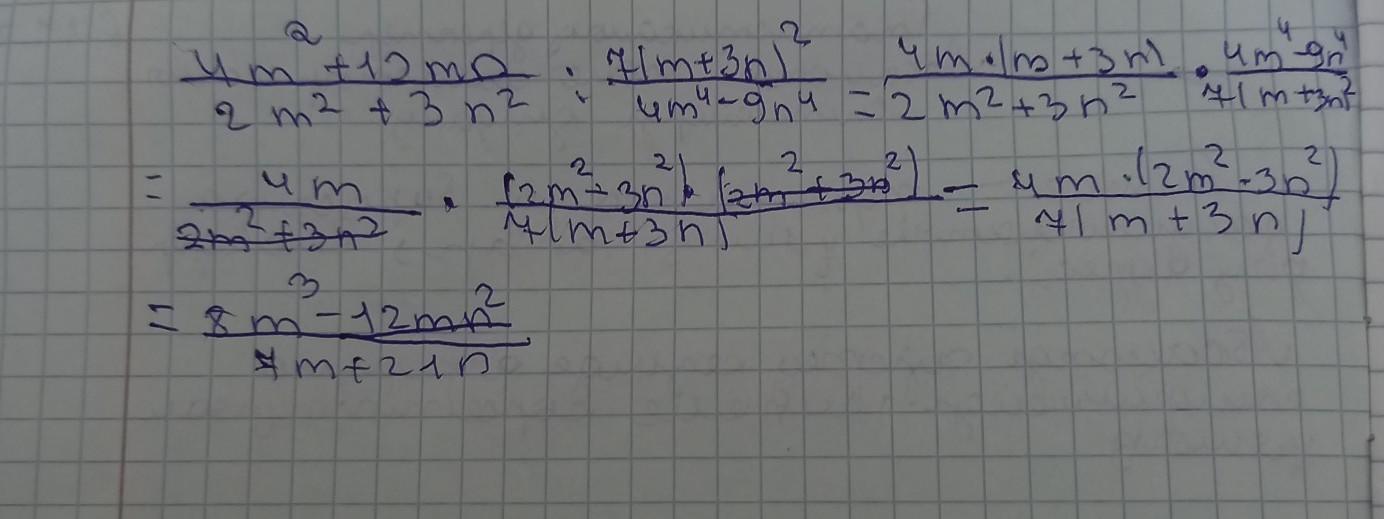 (4m²+12mn)/(2m²+3n²) : 7(m+3n)²/(4m⁴-9n⁴) = 4m·(m+3n)/(2m²+3n²) · (4m⁴-9n⁴)/7(m+3n)²
= 4m/(2m²+3n²) · (2m²-3n²)·(2m²+3n²)/7(m+3n) = 4m·(2m²-3n²)/7(m+3n)
= (8m³-12mn²)/(7m+21n)